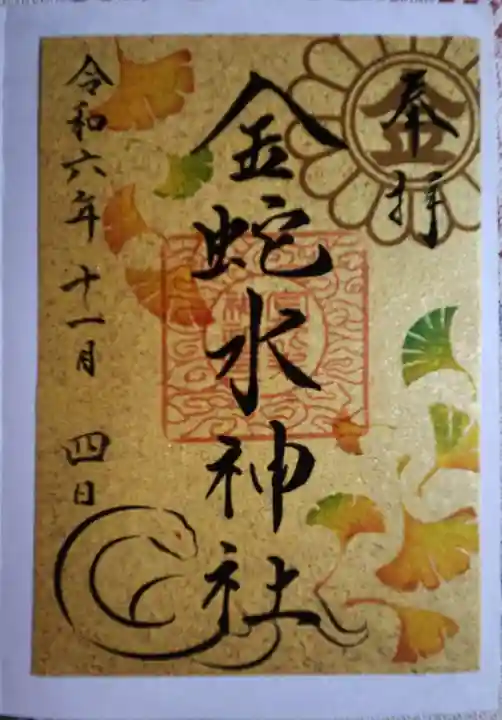 奉拝
金
金蛇水神社
令和六年十一月四日